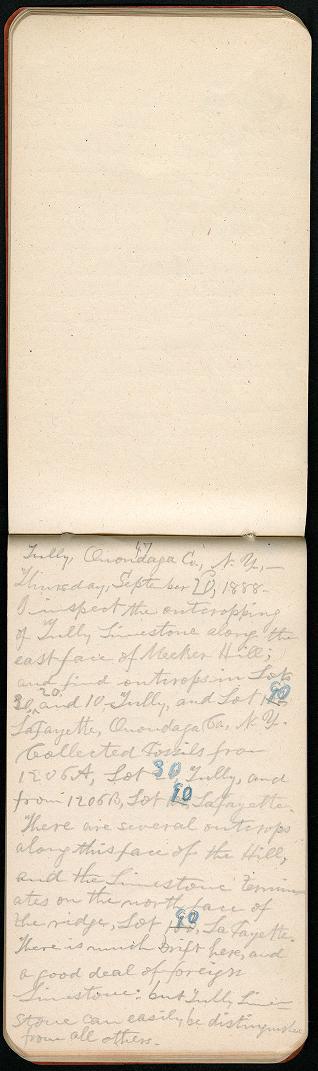 47
Tully, Onondaga Co., N. Y.,—
Thursday, September 20, 1888.
I inspect the outcropping
of Tully Limestone along the
east face of Meeker Hill;
and find outcrops in Lots
30, 20, and 10 Tully, and Lot 90
LaFayette, Onondaga Co., N. Y.
Collected Fossils from
1206A, Lot 30, Tully, and
from 1206B, Lot 90 LaFayette.
There are several outcrops
along this face of the Hill,
and the Limestone termin-
ates on the north face of
the ridge, Lot 90, LaFayette.
There is much Drift here, and
a good deal of foreign
Limestone: but Tully Lime-
stone can easily be distinguished
from all others.